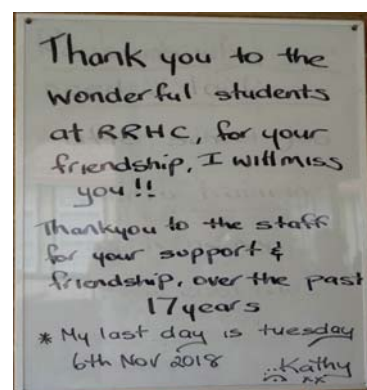 Thank you to the
wonderful students
at RRHC, for your
friendship, I will miss
you!!
Thankyou to the staff
for your support &
friendship, over the past
17 years
* My last day is tuesday
6th Nov 2018
Kathy
xx